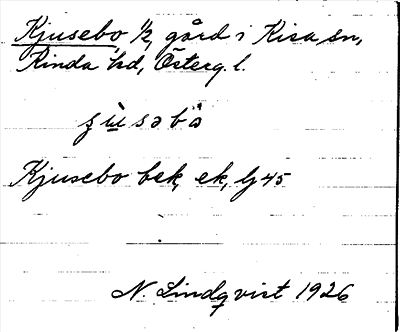 Kjusebo 1/2, gård i Kisa sn,
Kinda hd, Österg. l.
Kjusebo bek, ek, lj 45
N. Lindqvist 1926